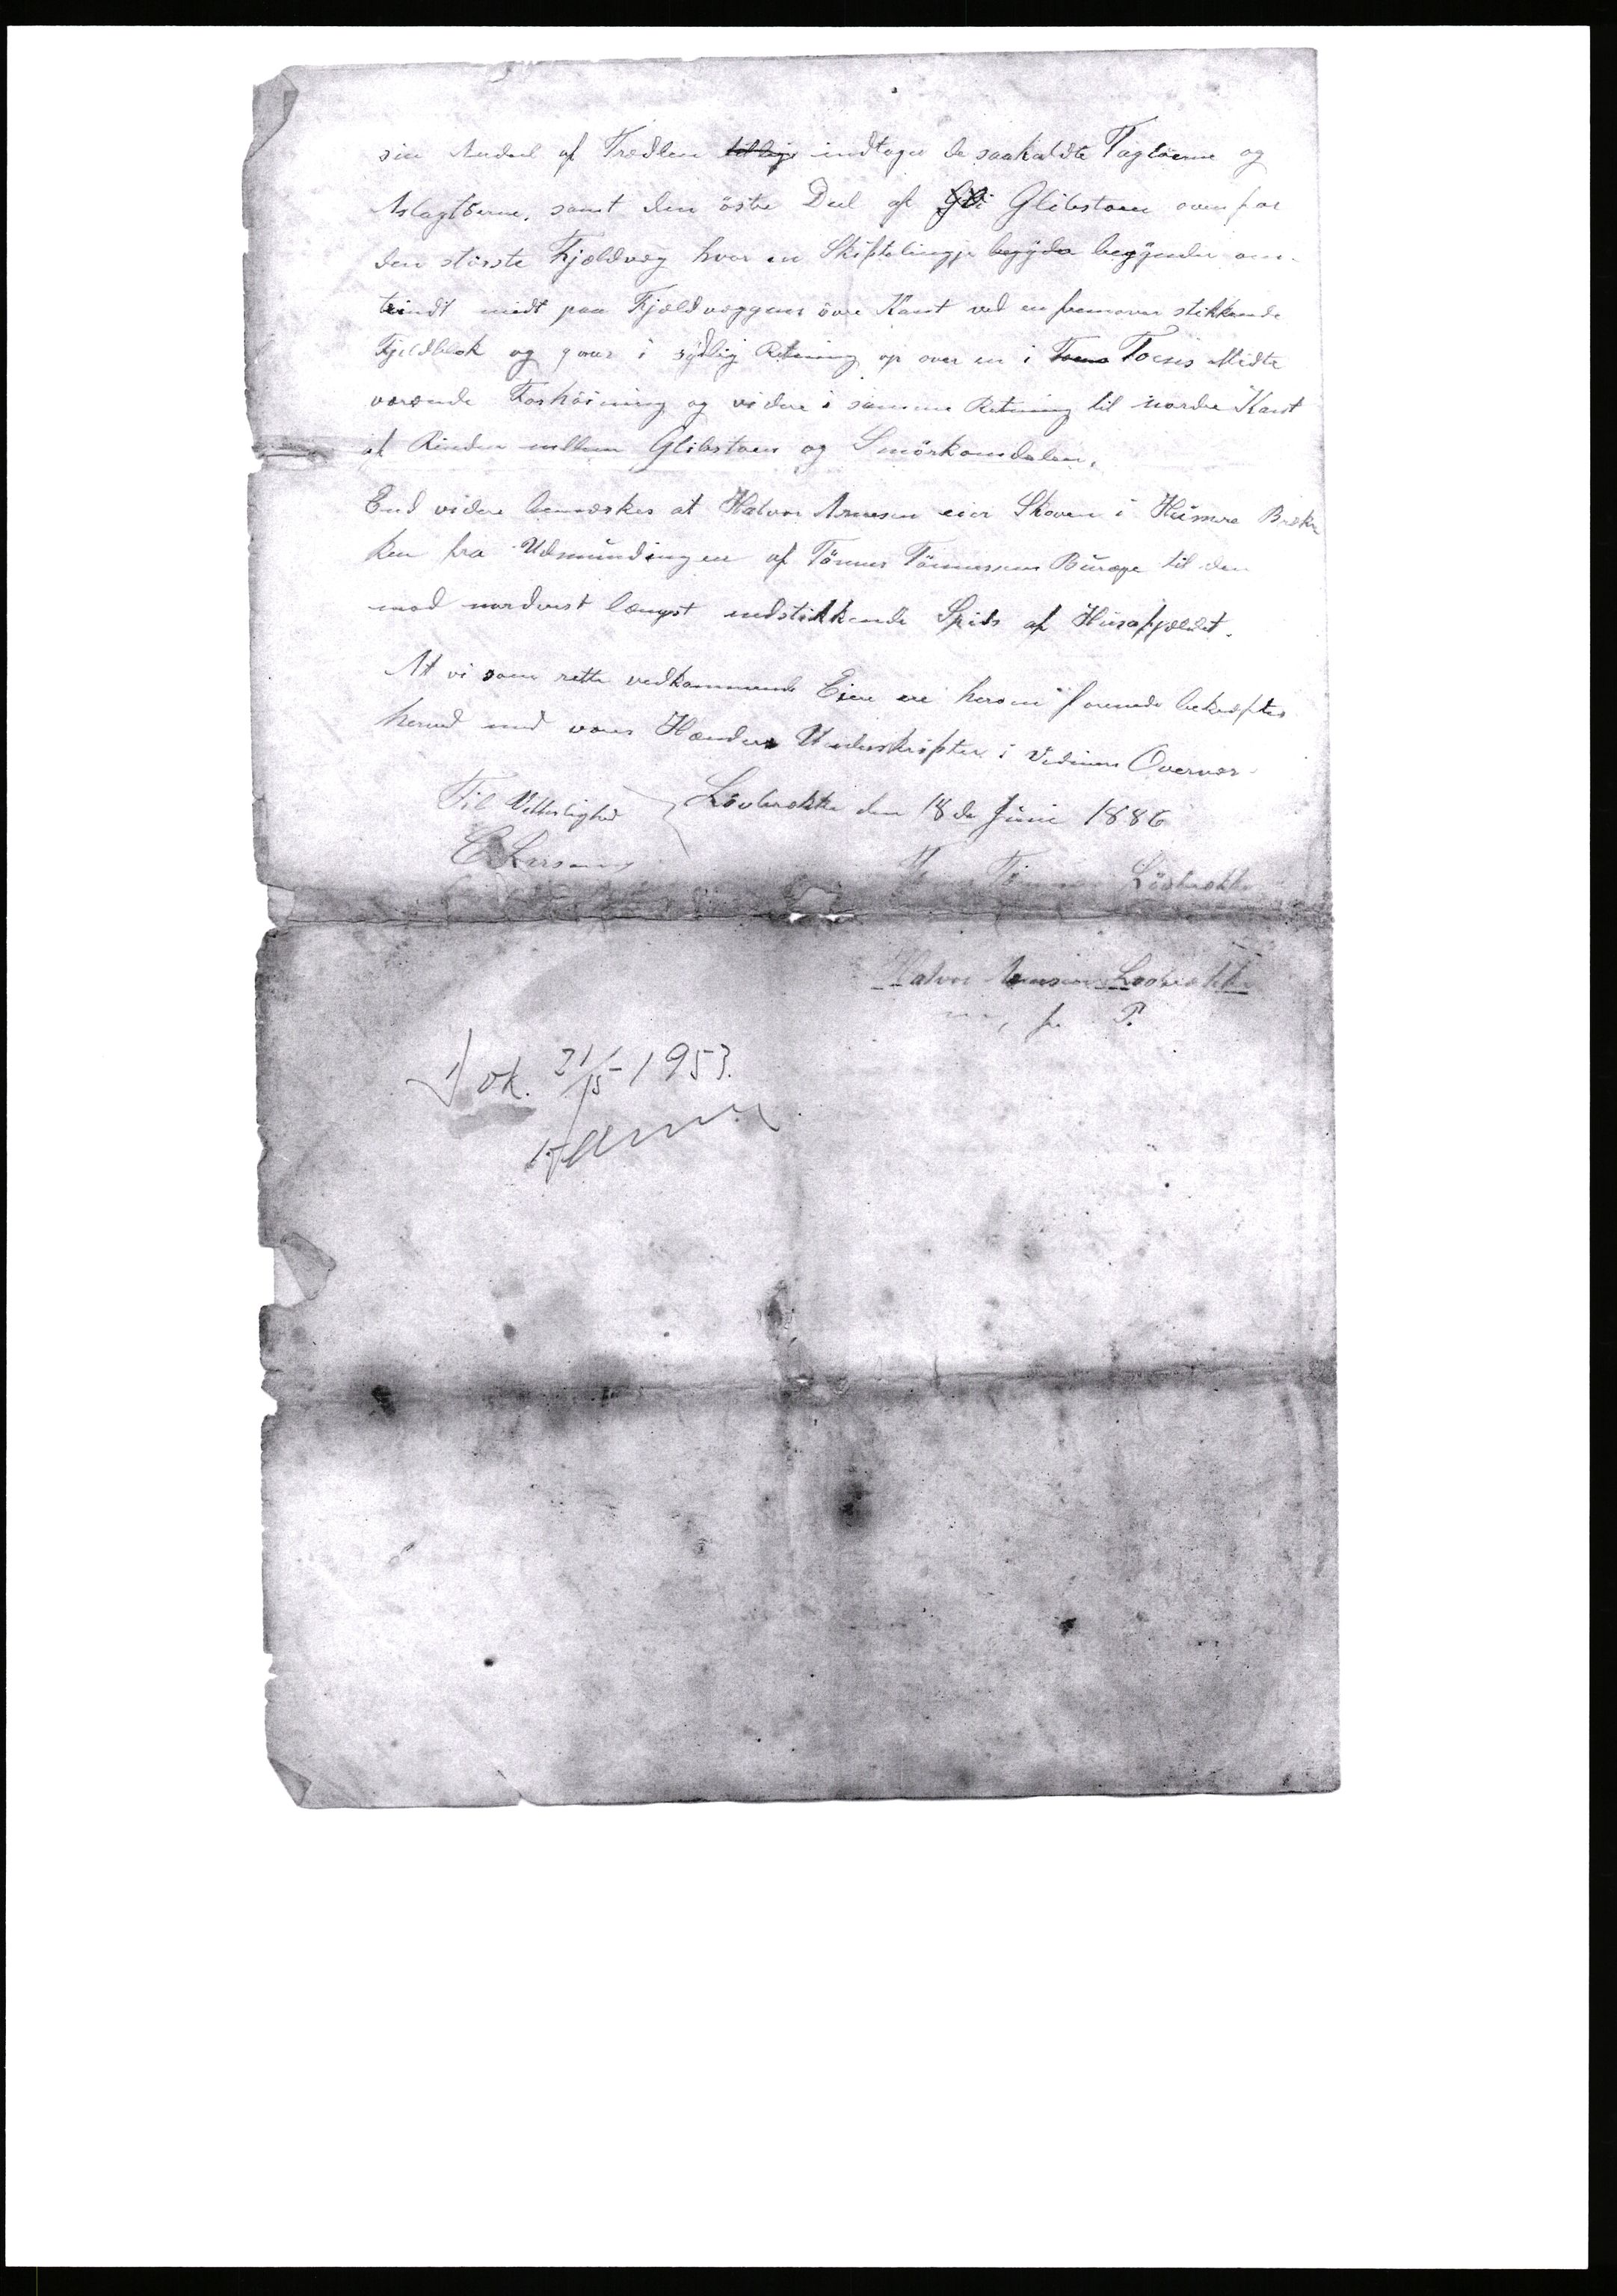 sin Andeel af Trædlen tillige indtager de saakaldte Tagtöerne og
Aslagtöerne, samt den östre Deel af Gli Glibstoen ovenfor
den störste Fjældvæg hvor en Skiftelingje begyde begynder om-
trindt midt paa Fjældvæggens övre Kant ved en fremover stikkende
Fjeldblok og gaar i sydlig Retning op over en i Toens Toens Midte
værende Forhöining og videre i samme Retning til nordre Kant
af Rinden mellem Glibstoen og Smörkomdalen.
End videre bemærkes at Halvor Arnesen eier Skoven i Hüsmre Bræk-
ken fra Udmundingen af Tönnes Tönnessens Buræge til den
mod nordvest længst nedstikkende Spids af Husafjældet.
At vi som rette vedkommende Eiere ere herom forenede bekræftes
herved med vores Hænders Underskrifter i Vidners Overvær
Til Vitterlighed Lövbrække den 18de Juni 1886
C Larsen Lövbrække
Halvor Arnesen Lovbrække
m, f. P.
ok. 21/5 1953.